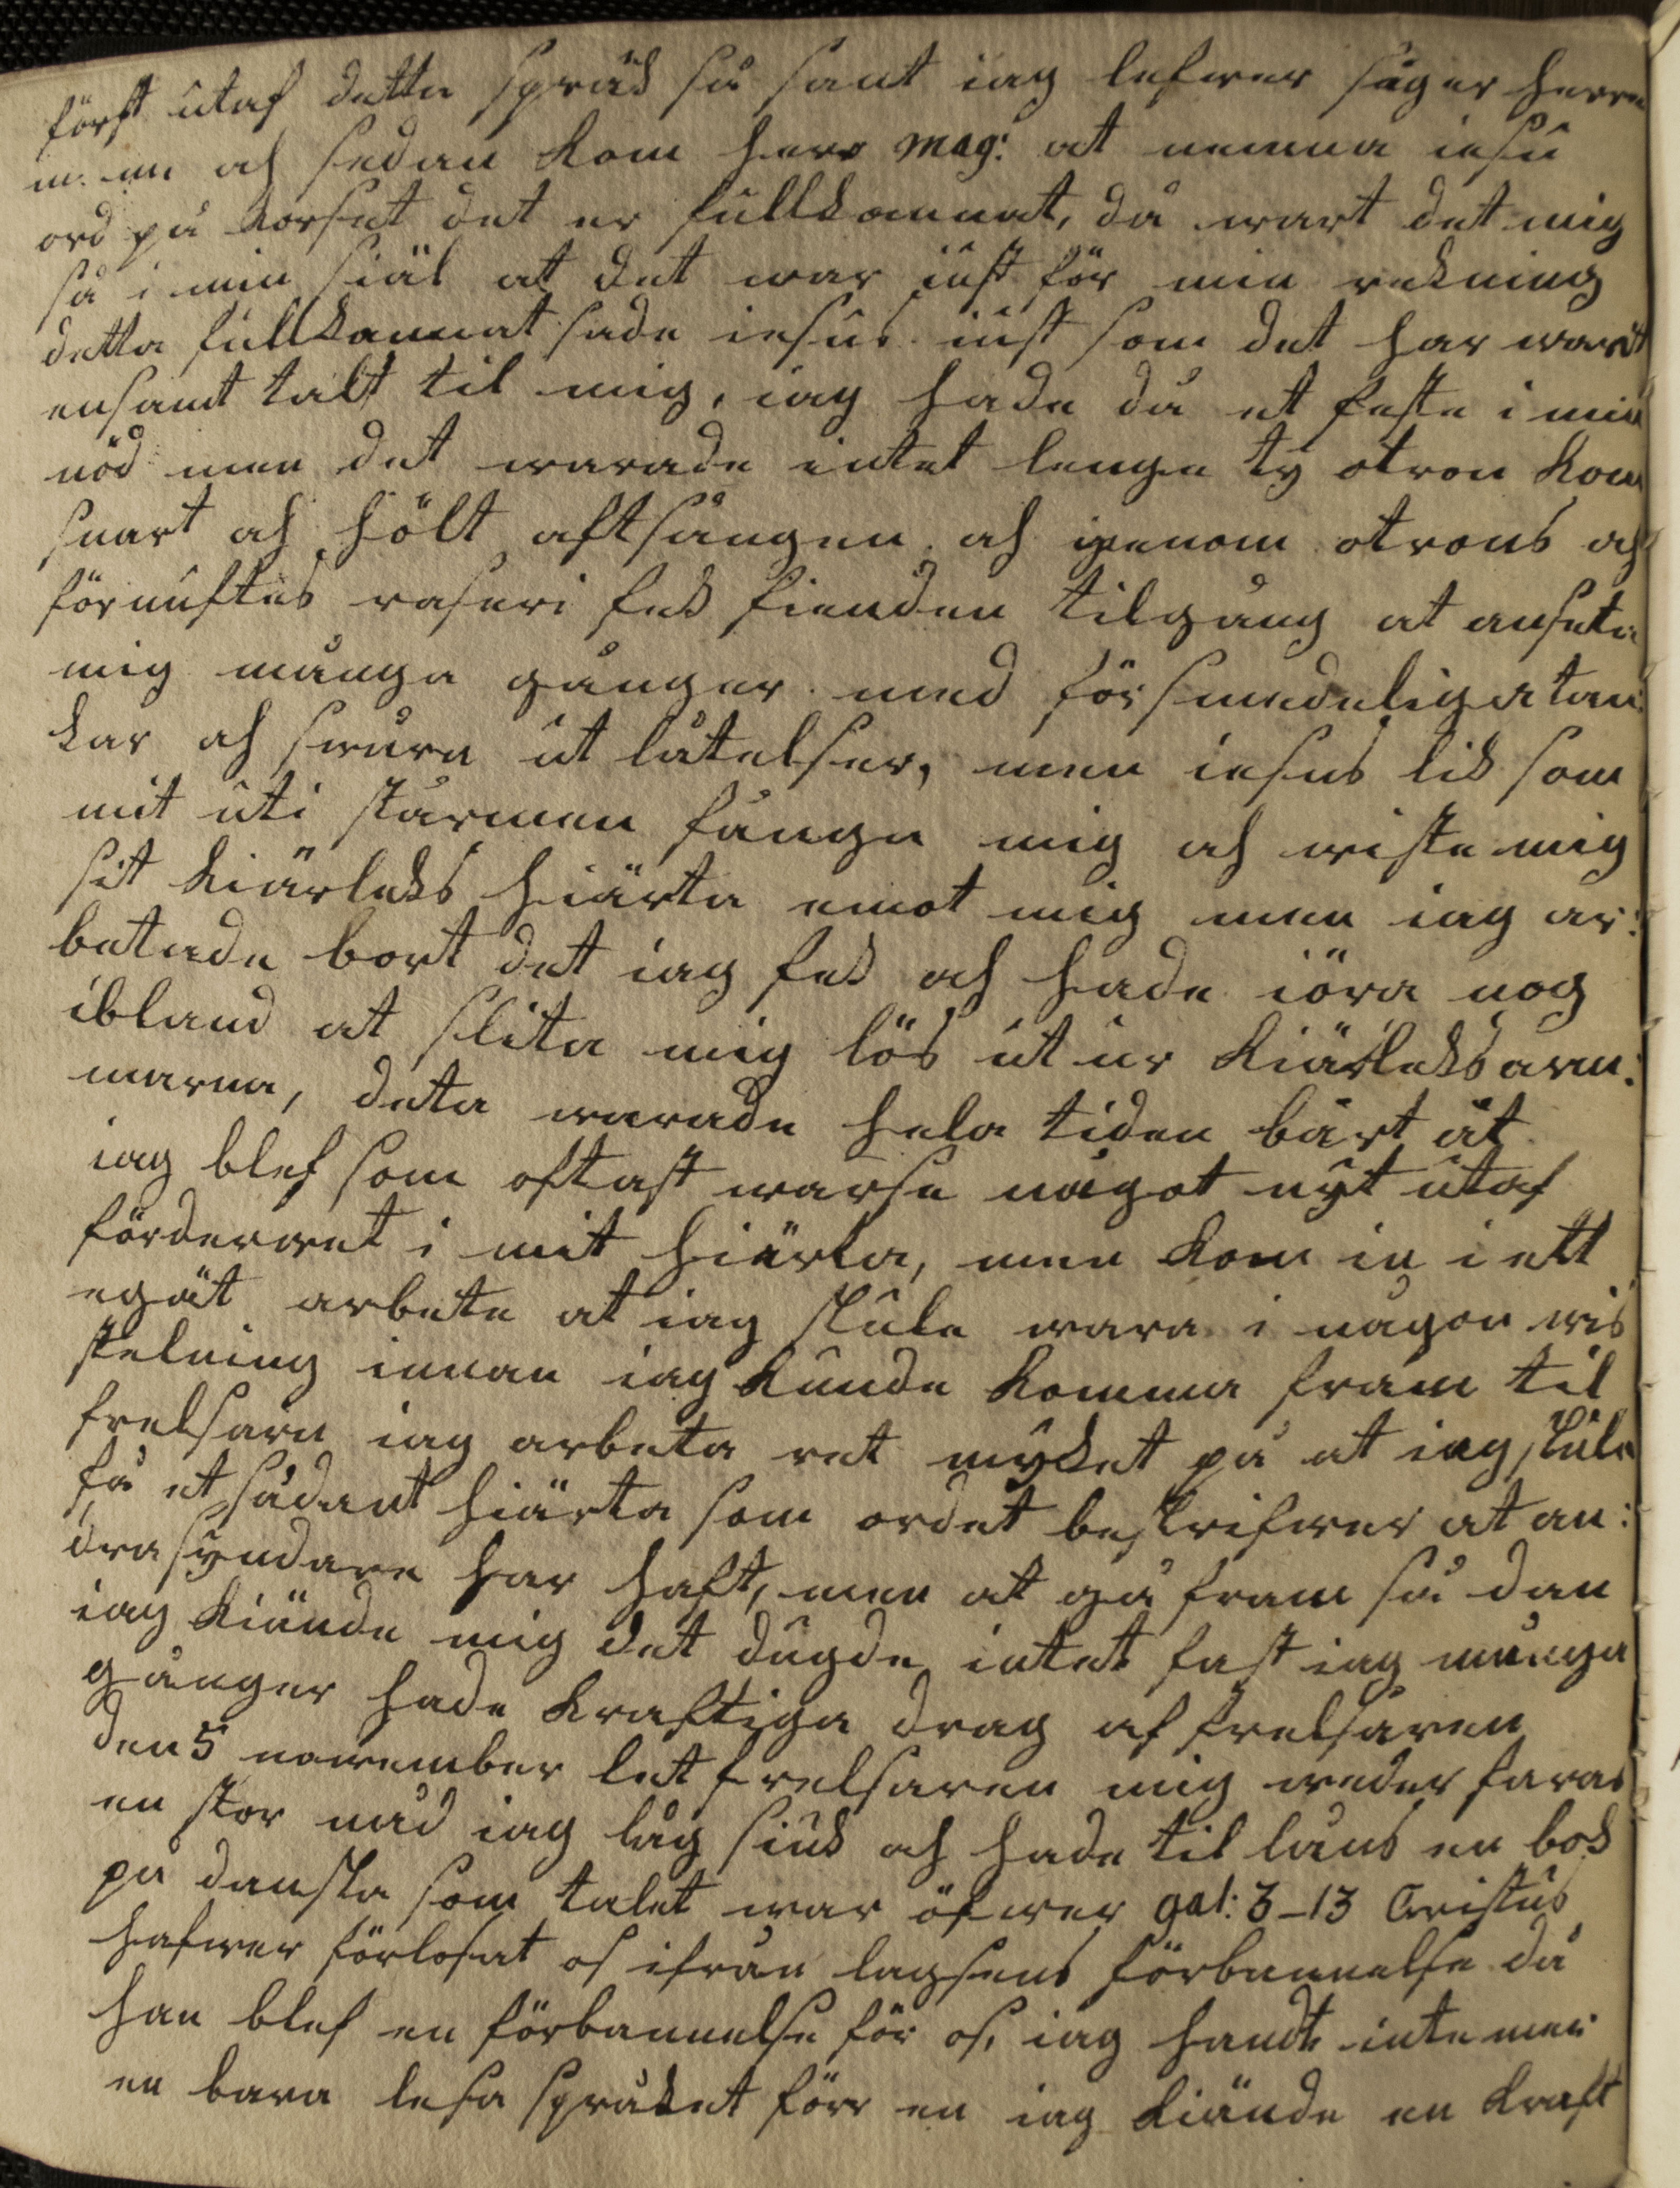 först utaf detta språk så sant iag lefwer säger herre
m: m: ah sedan kom herr mag: at nemna iesu
ord på korset det er fullkomnat, då wart det mig
så i min siäl at det war iust för min rekning
detta fullkomnat sade iesus iust som det har warit
ensamt talt til mig, iag hade då et feste i min
nöd men det warade intet lenge ty otron kom
snart ah hölt aftsången ah igenom otrons ah
förnuftes raseri fek fienden tilgång at ansete
mig många gånger med försmedeliga tan:
kar ah swåra ut låtelser, men iesus lik som
mit uti stormen fånge mig ah wiste mig
sit kiärleks hiärta emot mig men iag ar:
betade bort det iag fek ah hade iöra nog
ibland at slita mig lös ut ur kiärleks arm:
marna, deta warade hela tiden bårt åt
iag blef som oftast warse något nyt utaf
förderwet i mit hiärta, men kom in i ett
egät arbete at iag skule wara i någon wis
stelning innan iag kunde komma fram til
frelsarn iag arbeta ret myket på at iag skule
få et sådant hiärta som ordet beskrifwer at an:
dra syndare har haft, men at gå fram så dan
iag kiände mig det dugde intet fast iag många
gånger hade kraftiga drag af frelsaren
den 5 november let frelsaren mig weder faras
en stor nåd iag låg siuk ah hade til låns en bok
på danska som talet war öfwer gal: 3-13 Cristus
hafwer förlosat os ifrån lagsens förbannelse då
han blef en förbannelse för os, iag handt inte mer
en bara lesa språket förr en iag kiände en kraft